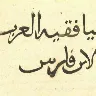 فتيا فقيه العرب
لابن فارس